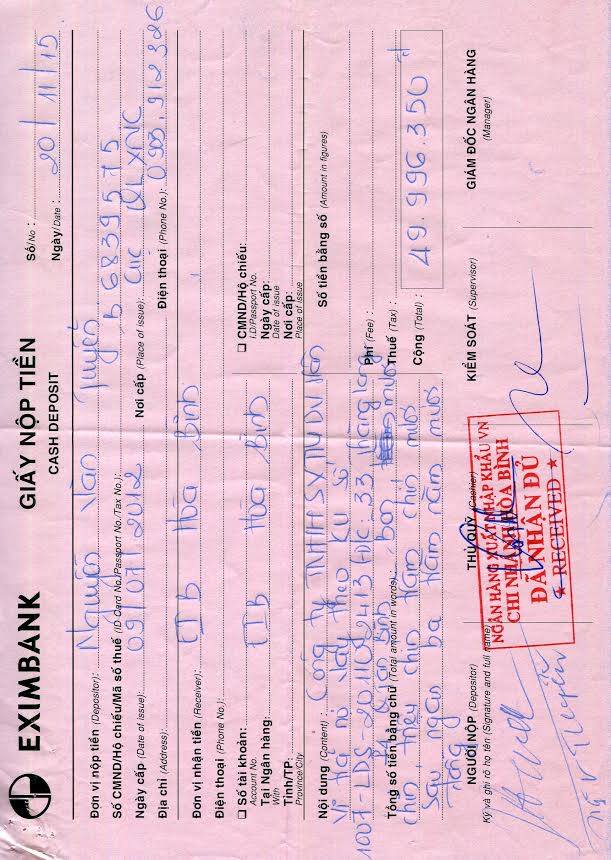 EXIMBANK
GIẤY NỘP TIỀN
CASH DEPOSIT
Số/No :
Ngày/Date : 20/11/15
Đơn vị nộp tiền (Depositor): Nguyễn Văn Tuyến
Số CMND/Hộ chiếu/Mã số thuế (ID Card No./Passport No./Tax No.): B 6839575
Ngày cấp (Date of issue): 09/07/2012 Nơi cấp (Place of issue): Cục QLXNC
Địa chỉ (Address): Điện thoại (Phone No.): 0903.912326
Đơn vị nhận tiền (Receiver): EIB Hòa Bình
Điện thoại (Phone No.):
Số tài khoản: EIB Hòa Bình
Account No.
Tại Ngân hàng:
With
Tỉnh/TP:
Province/City
CMND/Hộ chiếu:
I.D/Passport No.
Ngày cấp:
Date of issue
Nơi cấp:
Place of issue
Nội dung (Content): Công ty TNHH SX TM DV Văn
Vĩ trả nợ vay theo KU số
1007-LDS-201109413 Đ/c: 33 hàng long
Tổng số tiền bằng chữ (Total amount in words): bốn mươi
chín triệu chín trăm chín mươi
sáu ngàn ba trăm năm mươi
đồng
Số tiền bằng số (Amount in figures)
Phí (Fee) :
Thuế (Tax) :
Cộng (Total) : 49.996.350 đ
NGƯỜI NỘP (Depositor)
Ký và ghi rõ họ tên (Signature and full name)
THỦ QUỸ (Cashier)
KIỂM SOÁT (Supervisor)
GIÁM ĐỐC NGÂN HÀNG
(Manager)
NGÂN HÀNG XUẤT NHẬP KHẨU VN
CHI NHÁNH HÒA BÌNH
ĐÃ NHẬN ĐỦ
★ RECEIVED ★
Ng V Tuyến